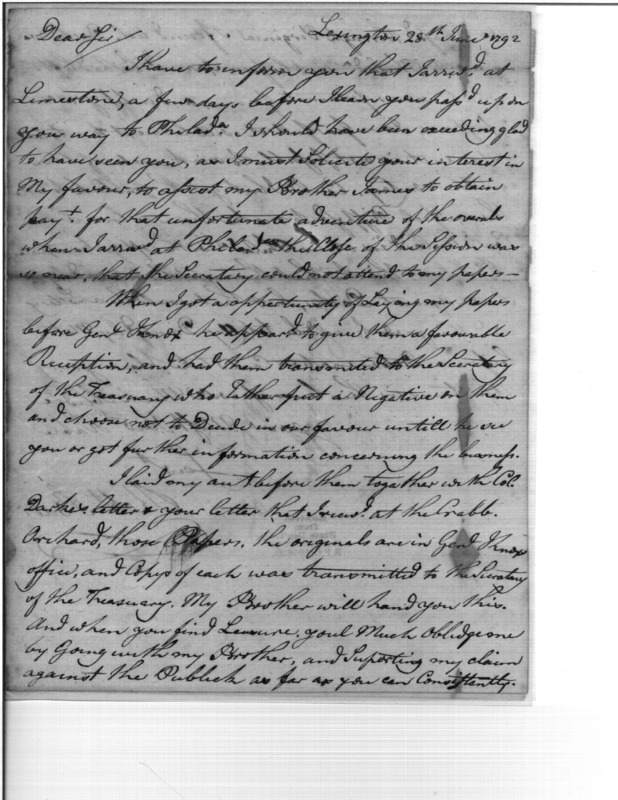 Dear Sir / Lexington 28th June 1792
I have to inform you that I arriv'd at
Limestone, a few days before I learn you pass'd up on
you way to Philada. I should have been exceeding glad
to have seen you, as I must Solicit your interest in
My favour, to assist my Brother James to obtain
payt. for that unfortunate adventure of the overals
when I arriv'd at Philada the Close of the Session was
so near, that the Secretary could not attend to my papers —
When I got a oppertunity of Laying my papers
before Genl. Knox he appear'd to give them a favourable
Reception, and had them transmited to the Secretary
of the Treasury who Rather put a Negative on them
and choose not to Decide in our favour untill he see
you or got further information concerning the business.
I laid my act before them together with Col.
Darke's letter & your letter that I recvd. at the Crabb.
Orchard, those Papers, the originals are in Genl. Knox
office, and Copys of each was transmitted to the Secratary
of the Treasury. My Brother will hand you this.
And when you find Leasure, youl Much Oblidge me
by Going with my Brother, and Suporting my claim
against the Publick as far as you can Consistently.